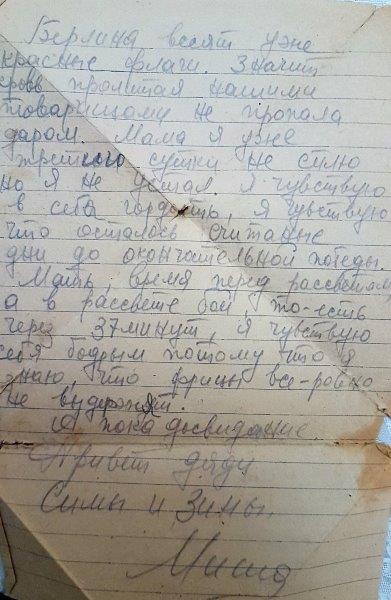 Берлина весят уже
красные флаги. Значит
кровь пролитая нашими
товарищому не пропала
даром. Мама я уже
сутки не сплю
но я не устал. Я чувствую
в себе гордость, я чувствую
что осталось считаные
дни до окончательной победы.
Мать, время перед рассветом,
а в рассвете бой, то-есть
через 37 минут, я чувствую
себя бодрым потому что я
знаю, что фрицы все-ровно
не выдержят.
А пока досвидание.
Привет дяди
Симы и Зимы.
Миша